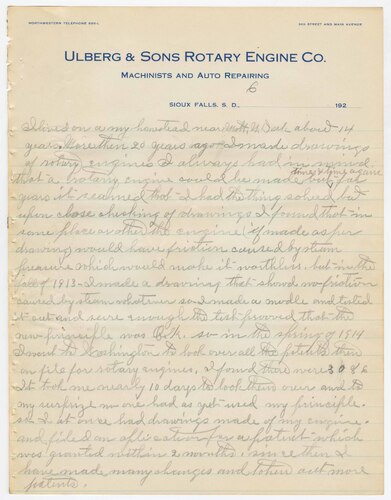 NORTHWESTERN TELEPHONE
STREET AND MAIN AVENUE
ULBERG & SONS ROTARY ENGINE CO.
MACHINISTS AND AUTO REPAIRING
6
SIOUX FALLS, S. D., 192
I lived on a my homstead near So. Dak about 14
years. More then 20 years ago I made drawings
of rotary engines I always had in mind
that a Rotary engine could be made but for time & time again
years it seemed that I had the thing solved but
upon close checking of drawings I found that in
some place or other the engine if made as per
drawing would have friction caused by steam
pressure which would make it worthless. but in the
fall of 1913 I made a drawing that showed no friction
caused by steam whatever so I made a modle and tested
it out and sure enough the test proved that the
new principle was O.K. so in the spring of 1914
I went to Washington to look over all the patents then
on file for rotary engines, I found there were 3086
It took me nearly 10 days to look them over and to
my surprise no one had as yet used my principle.
so I at once had drawings made of my engine.
and filed an aplication for a patent which
was granted within 2 months. since then I
have made many changes and taken out more
patents.